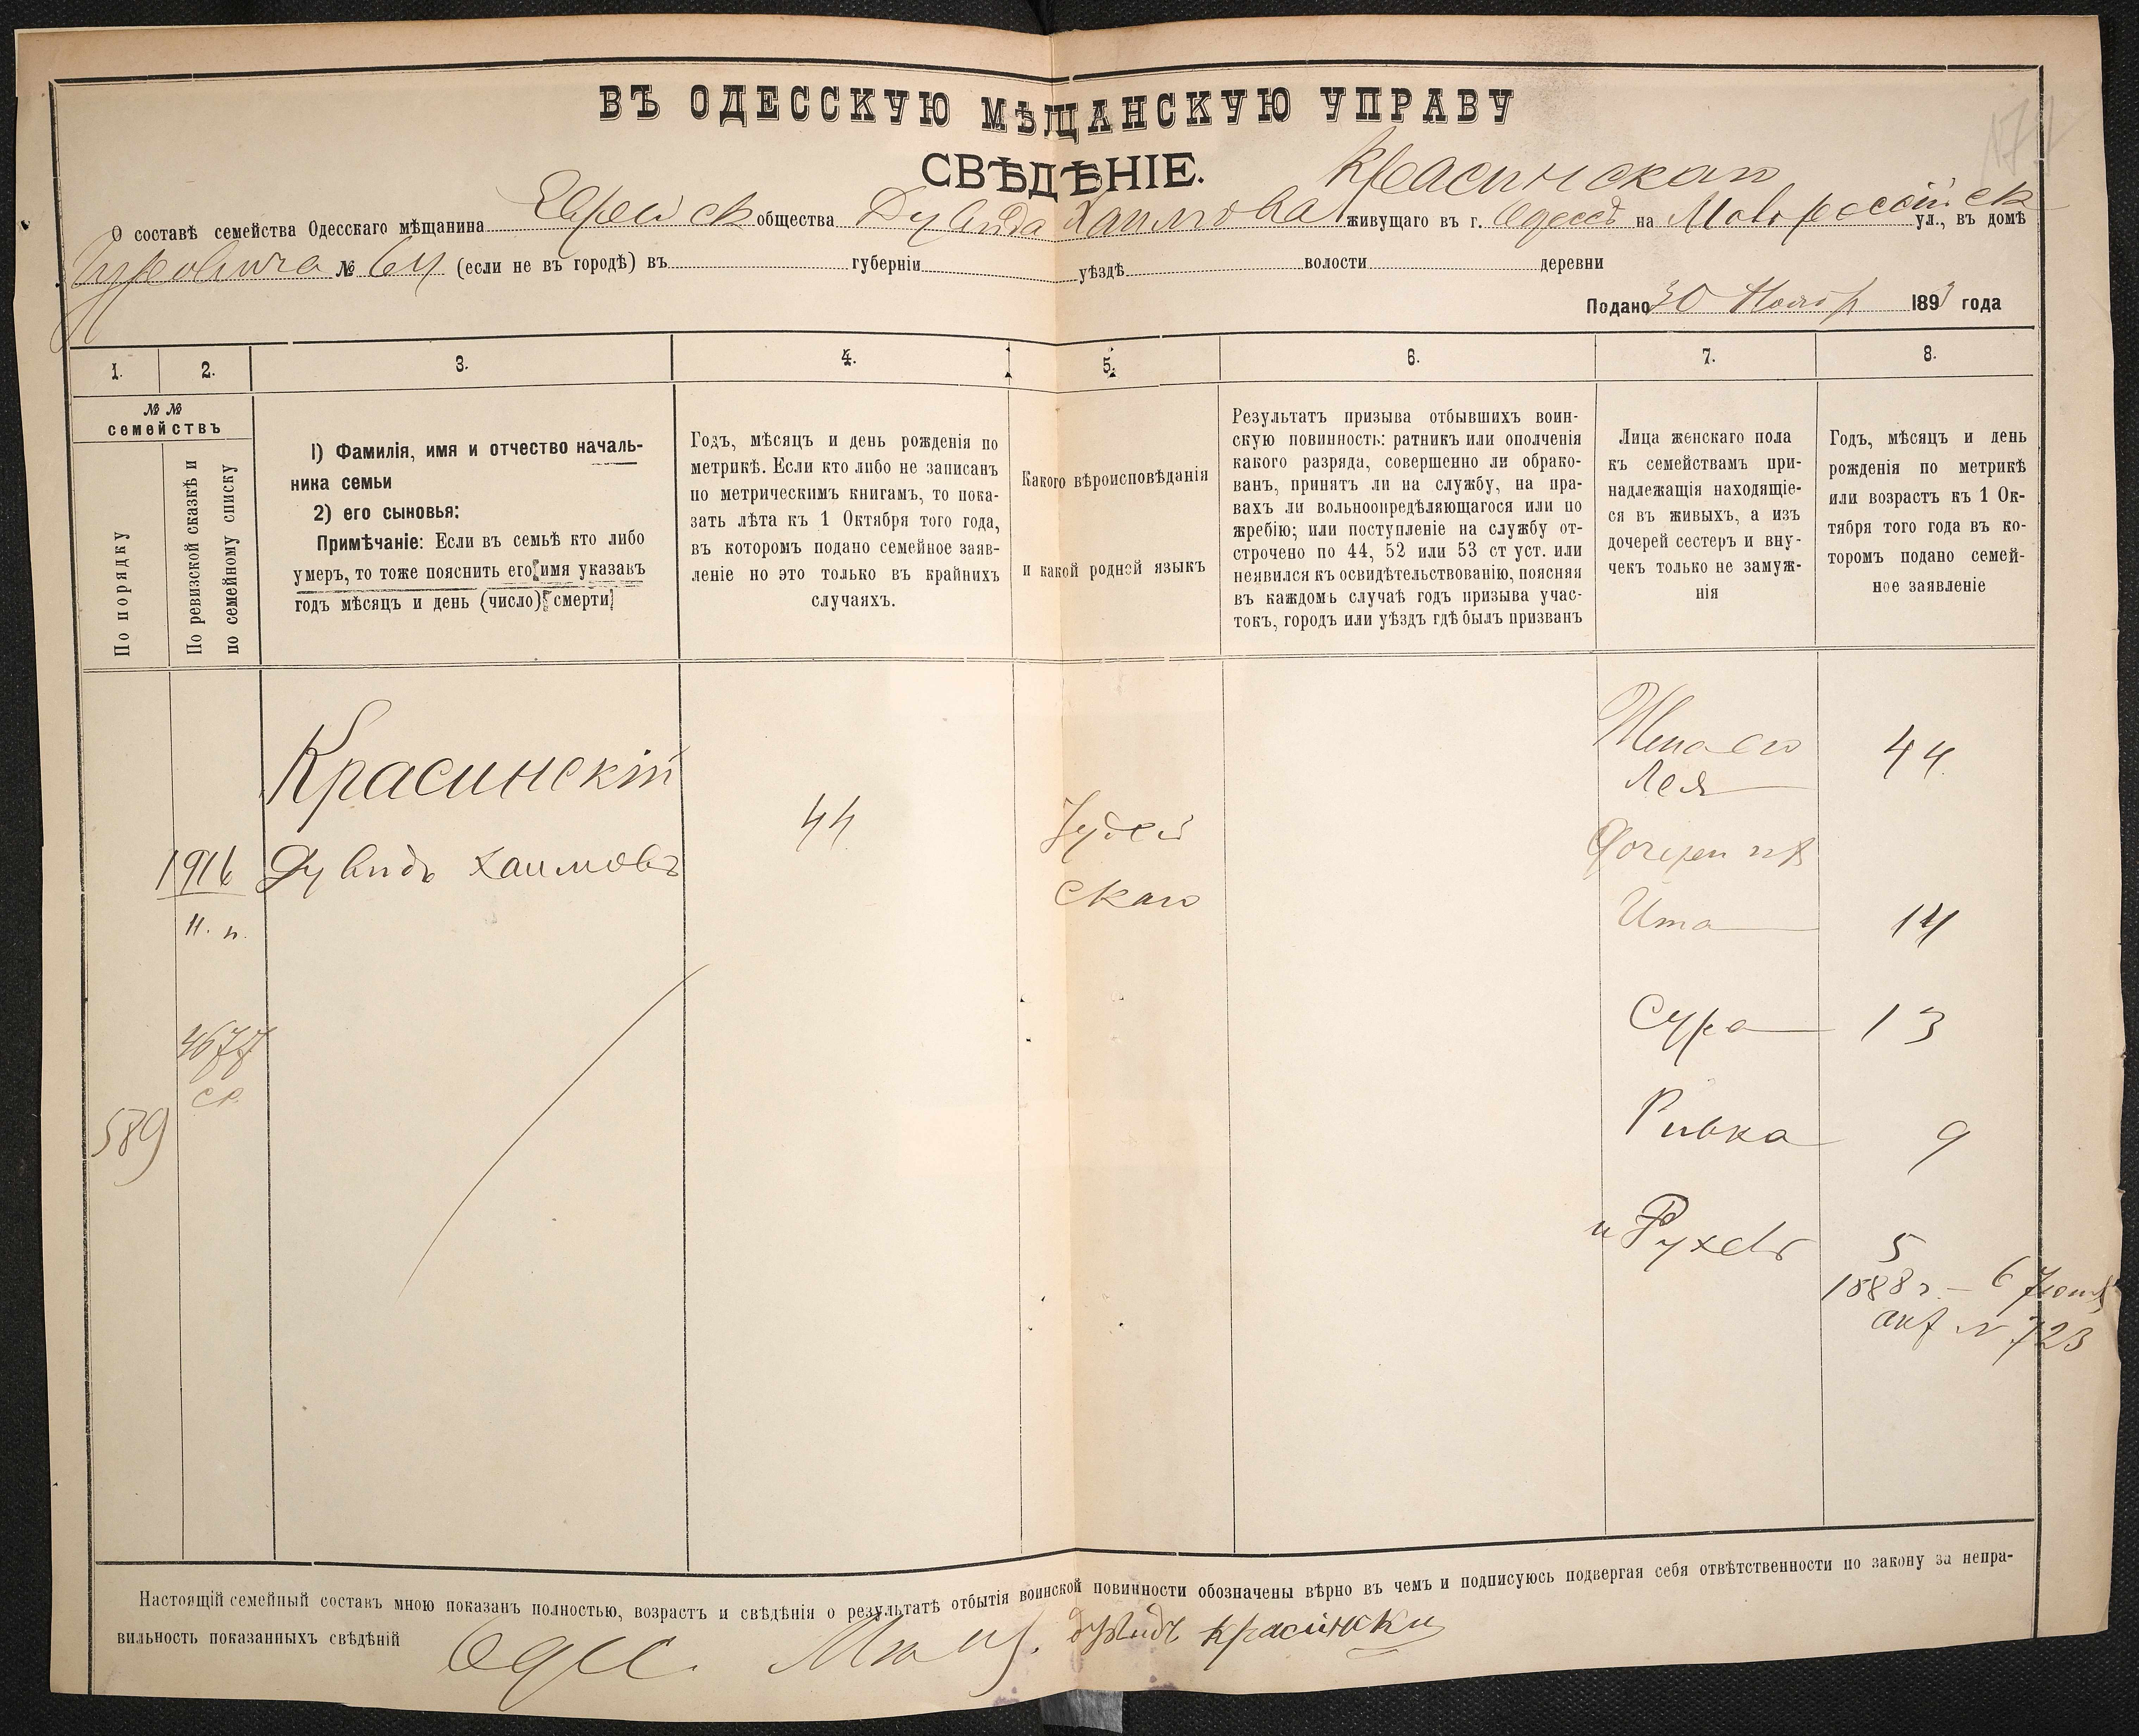 ВЪ ОДЕССКУЮ МѢЩАНСКУЮ УПРАВУ
СВѢДѢНІЕ.
Красинскаго
О составѣ семейства Одесскаго мѣщанина Еврейск общества Дувида Хаимова живущаго въ г. Одессѣ на Малороссійск ул., въ домѣ
Гуровича № 64 (если не въ городѣ) въ губерніи уѣздѣ волости деревни
Подано 30 Ноябр 1893 года
1. 2. 3. 4. 5. 6. 7. 8.
№ №
семействъ
По порядку
По ревизской сказкѣ и
по семейному списку
1) Фамилія, имя и отчество началь-
ника семьи
2) его сыновья:
Примѣчаніе: Если въ семьѣ кто либо
умеръ, то тоже пояснить его имя указавъ
годъ мѣсяцъ и день (число) смерти
Годъ, мѣсяцъ и день рожденія по
метрикѣ. Если кто либо не записанъ
по метрическимъ книгамъ, то пока-
зать лѣта къ 1 Октября того года,
въ которомъ подано семейное заяв-
леніе но это только въ крайнихъ
случаяхъ.
Какого вѣроисповѣданія
и какой родной языкъ
Результатъ призыва отбывшихъ воин-
скую повинность: ратникъ или ополченія
какого разряда, совершенно ли обрако-
ванъ, принятъ ли на службу, на пра-
вахъ ли вольноопредѣляющагося или по
жребію; или поступленіе на службу от-
строчено по 44, 52 или 53 ст уст. или
неявился къ освидѣтельствованію, поясняя
въ каждомъ случаѣ годъ призыва учас-
токъ, городъ или уѣздъ гдѣ былъ призванъ
Лица женскаго пола
къ семействамъ при-
надлежащія находящіе-
ся въ живыхъ, а изъ
дочерей сестеръ и вну-
чекъ только не замуж-
нія
Годъ, мѣсяцъ и день
рожденія по метрикѣ
или возрастъ къ 1 Ок-
тября того года въ ко-
торомъ подано семей-
ное заявленіе
Красинскій
1916 Дувидъ Хаимовъ
н. п.
4677
ск
589
44
Іудей
скаго
Жена его
Лея 44
Дочери
Ита 14
Сура 13
Ривка 9
и Рухель 5
1888 г. — 6 Іюня
акт N 723
Настоящій семейный составъ мною показанъ полностью, возрастъ и свѣдѣнія о результатѣ отбытія воинской повинности обозначены вѣрно въ чемъ и подписуюсь подвергая себя отвѣтственности по закону за непра-
вильность показанныхъ свѣдѣній Одес. Мѣщ. дувидъ красински